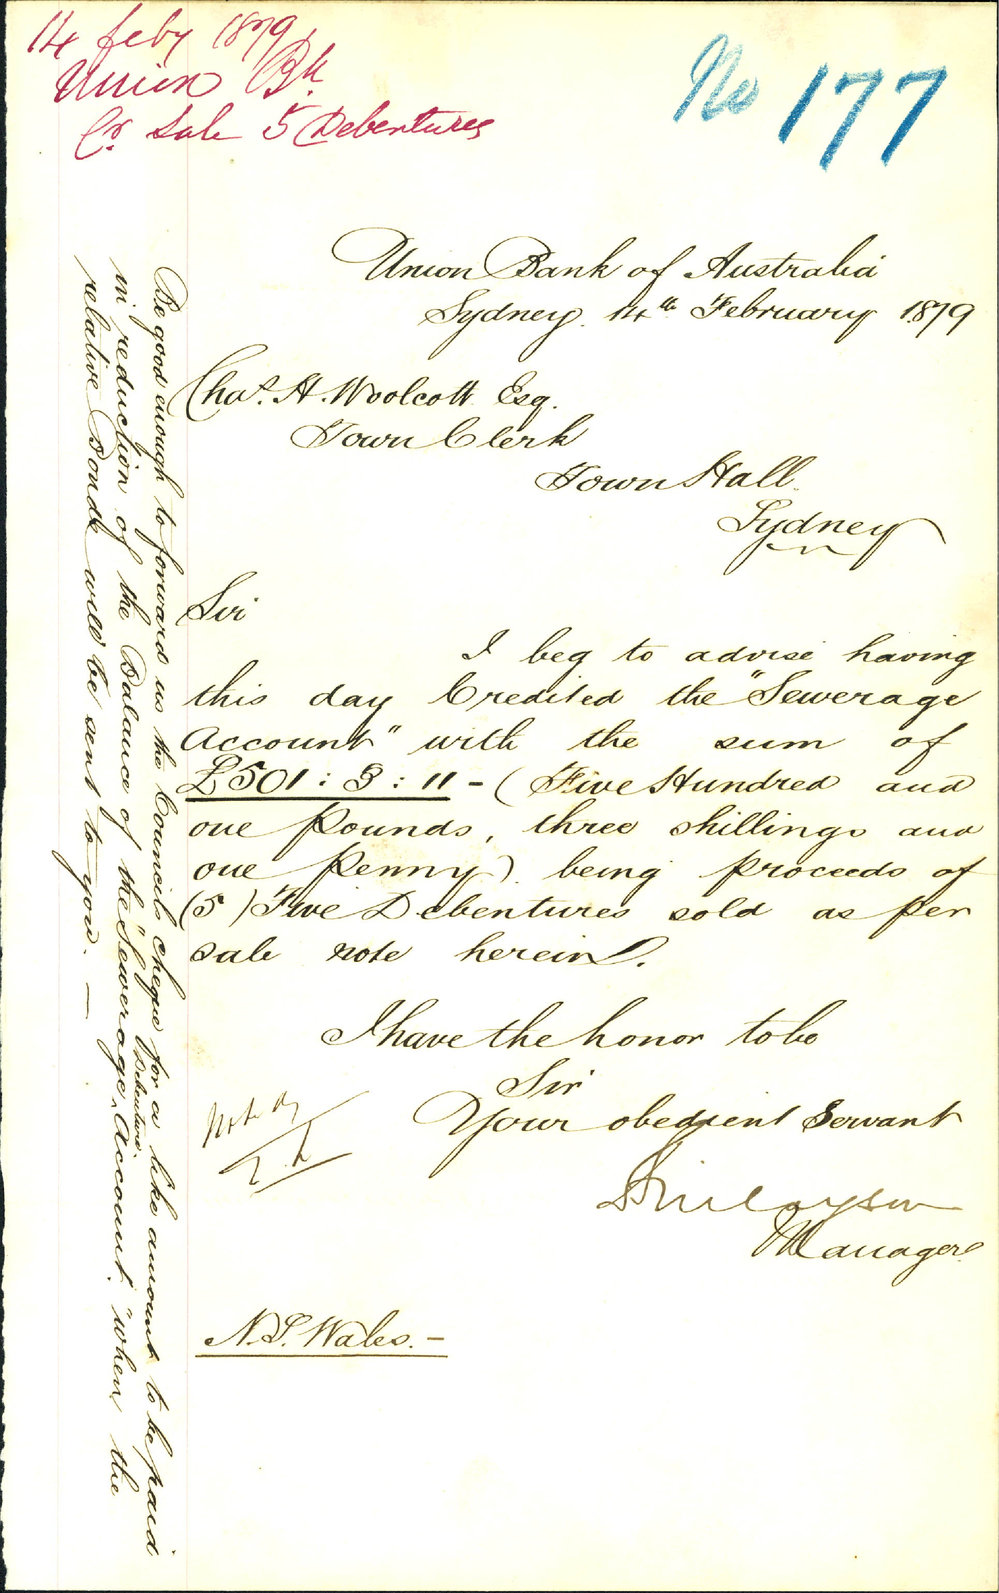 14 feby 1879
Union Bk.
Cr. Sale 5 Debentures
No 177
Union Bank of Australia
Sydney. 14th February 1879
Chas. H. Woolcott Esq.
Town Clerk
Town Hall.
Sydney
Sir
I beg to advise having
this day Credited the "Sewerage
Account" with the sum of
£501 : 3 : 11 - (Five Hundred and
one pounds, three shillings and
one penny) being proceeds of
(5) Five Debentures sold as per
sale note herein.
I have the honor to be
Sir
Your obedient Servant
Finlayson
Manager
N.S. Wales. -
Be good enough to forward us the Council's cheque for a like amount to be paid
in reduction of the Balance of the "Sewerage Debenture Account" when the
relative Bonds will be sent to you. —